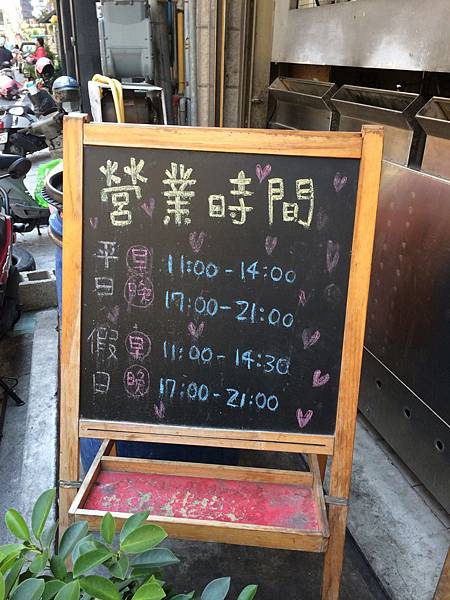 營業時間
平日 早 11:00-14:00
晚 17:00-21:00
假日 早 11:00-14:30
晚 17:00-21:00